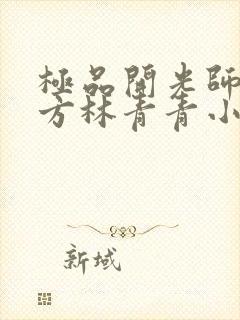 極品開光師
方林青青小
新域